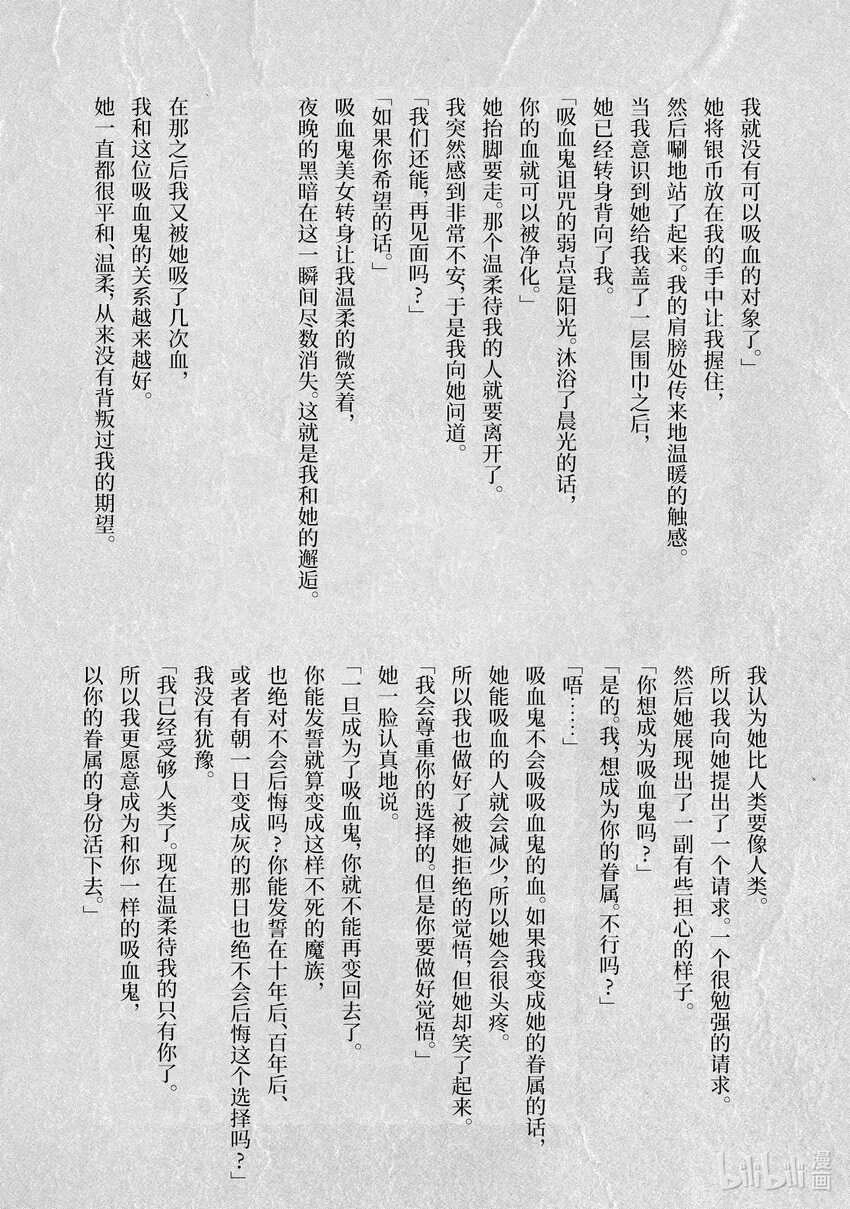 我就没有可以吸血的对象了。」
她将银币放在我的手中让我握住，
然后唰地站了起来。我的肩膀处传来地温暖的触感。
当我意识到她给我盖了一层围巾之后，
她已经转身背向了我。
「吸血鬼诅咒的弱点是阳光。沐浴了晨光的话，
你的血就可以被净化。」
她抬脚要走。那个温柔待我的人就要离开了。
我突然感到非常不安，于是我向她问道。
「我们还能，再见面吗？」
「如果你希望的话。」
吸血鬼美女转身让我温柔的微笑着，
夜晚的黑暗在这一瞬间尽数消失。这就是我和她的邂逅。
在那之后我又被她吸了几次血，
我和这位吸血鬼的关系越来越好。
她一直都很平和、温柔，从来没有背叛过我的期望。
我认为她比人类要像人类。
所以我向她提出了一个请求。一个很勉强的请求。
然后她展现出了一副有些担心的样子。
「你想成为吸血鬼吗？」
「是的。我，想成为你的眷属。不行吗？」
「唔……」
吸血鬼不会吸吸血鬼的血。如果我变成她的眷属的话，
她能吸血的人就会减少，所以她会很头疼。
所以我也做好了被她拒绝的觉悟，但她却笑了起来。
「我会尊重你的选择的。但是你要做好觉悟。」
她一脸认真地说。
「一旦成为了吸血鬼，你就不能再变回去了。
你能发誓就算变成这样不死的魔族，
也绝对不会后悔吗？你能发誓在十年后、百年后、
或者有朝一日变成灰的那日也绝不会后悔这个选择吗？」
我没有犹豫。
「我已经受够人类了。现在温柔待我的只有你了。
所以我更愿意成为和你一样的吸血鬼，
以你的眷属的身份活下去。」
bilibili 漫画